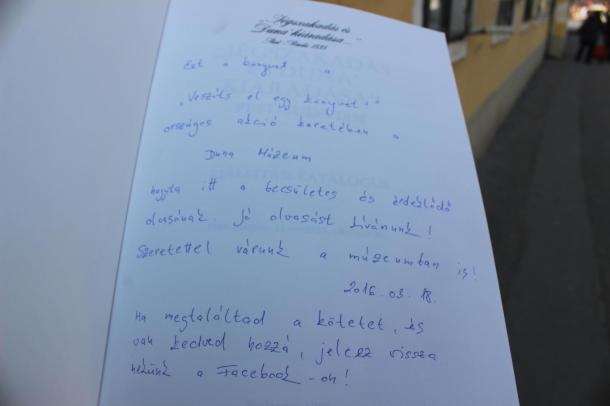 Jégszakadás és
Duna' kiáradása
Pest-Buda 1838
Ezt a könyvet a
"Veszíts el egy könyvet!"
országos akció keretében a
Duna Múzeum
hagyta itt a becsületes és érdeklődő
olvasónak. Jó olvasást kívánunk!
Szeretettel várunk a múzeumban is!
2016.03.18.
Ha megtaláltad a kötetet, és
van kedved hozzá, jelezz vissza
nekünk a Facebook-on!